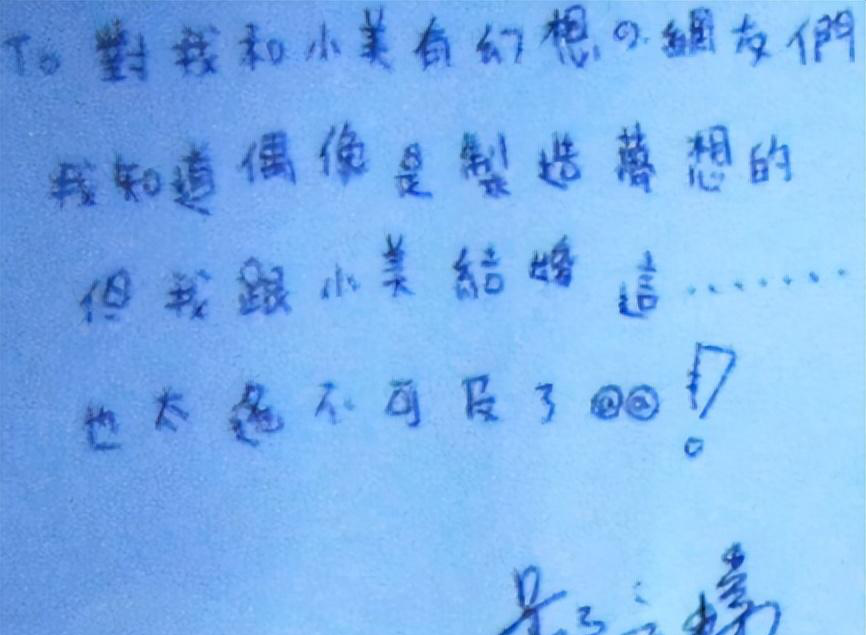 To 對我和小美有幻想の網友們
我知道偶像是製造夢想的
但我跟小美結婚這........
也太遙不可及了@@!?